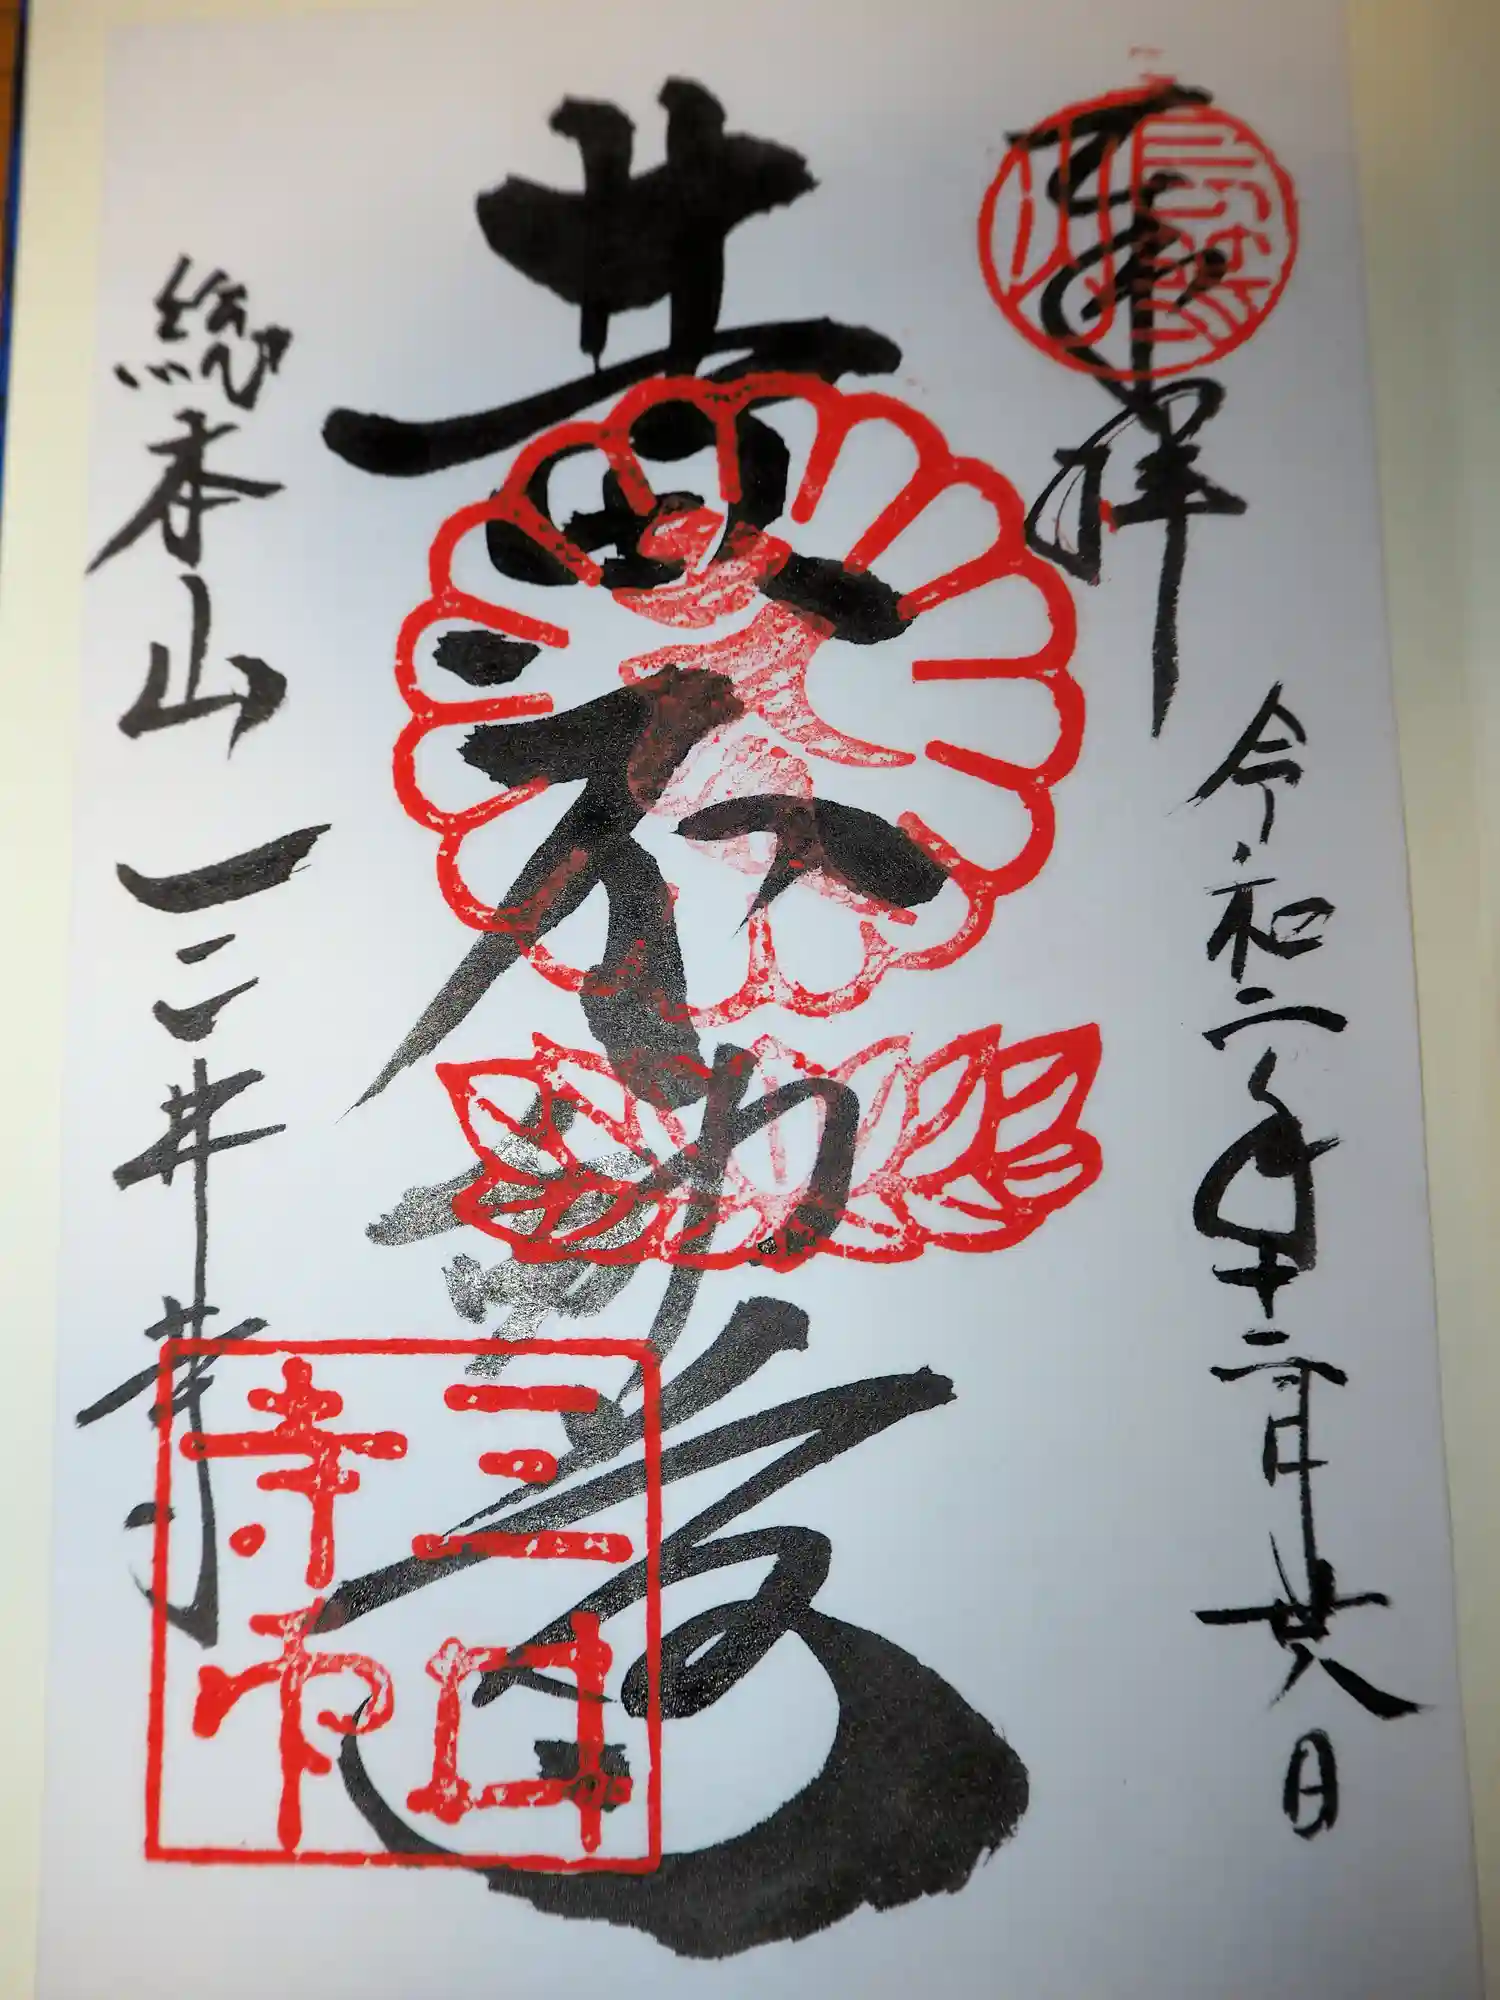 奉拝
令和二年十二月廿八日
黄不動尊
総本山 三井寺
三井
寺印